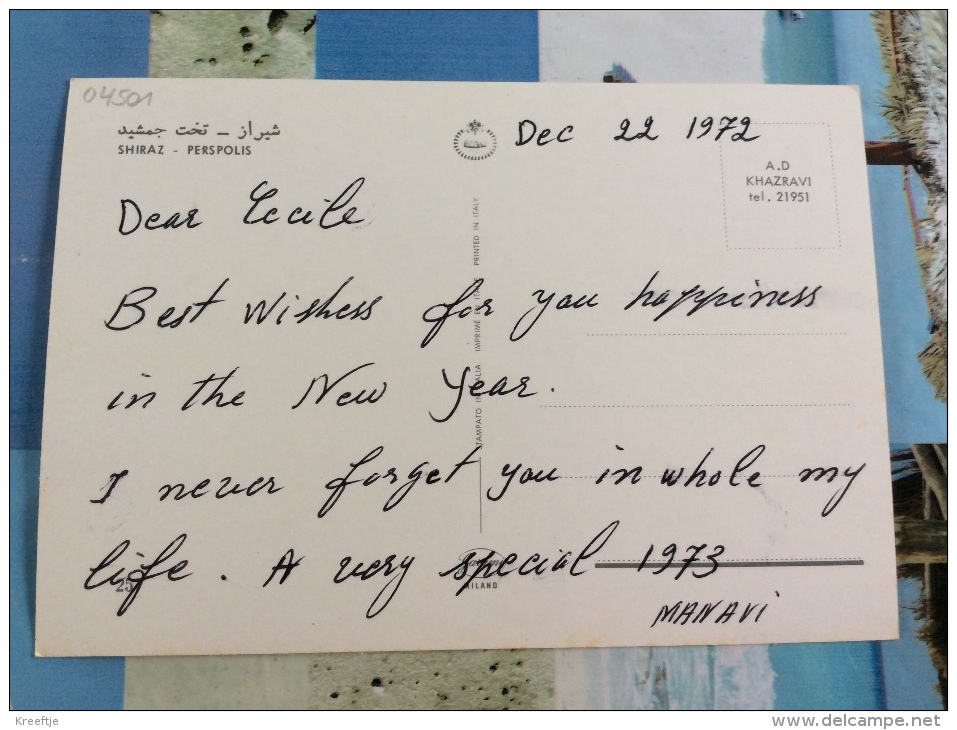 04501
شیراز ـ تخت جمشید
SHIRAZ - PERSPOLIS
Dec 22 1972
A.D
KHAZRAVI
tel. 21951
Dear Cecile
Best Wishess for you happiness
in the New Year.
I never forget you in whole my
life. A very special 1973
MANAVi
PRINTED IN ITALY
MILANO
Kreeftje
www.delcampe.net